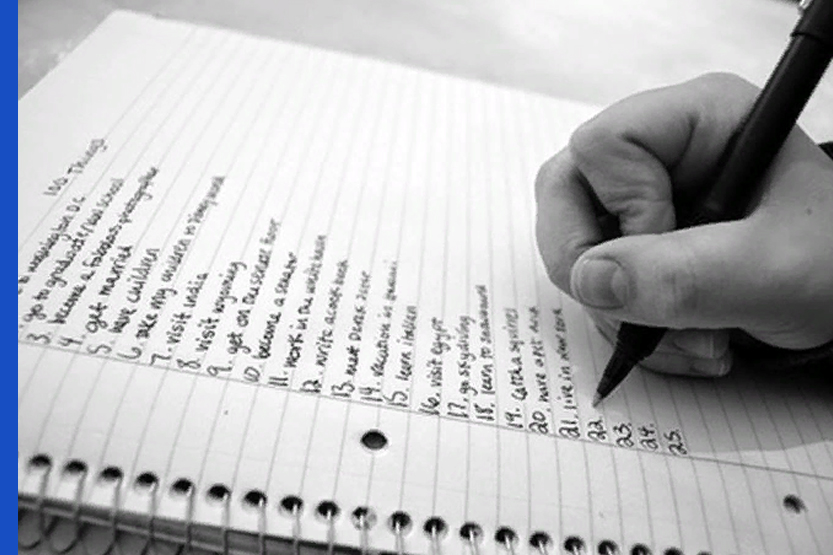 100 Things
go to graduate/law school
3. become a fabulous photographer
4. get married
5. have children
6. take my children to Disney world
7. visit india
8. visit wyoming
9. get on the senate floor
10. become a senator
11. work in the white house
12. write a cook book
13. meet Derek Jeter
14. vacation in
15. learn italian
16. visit egypt
17. go skydiving
18. learn to
19. catch a
20. have a pet
21. live in new york
22.
23.
24.
25.